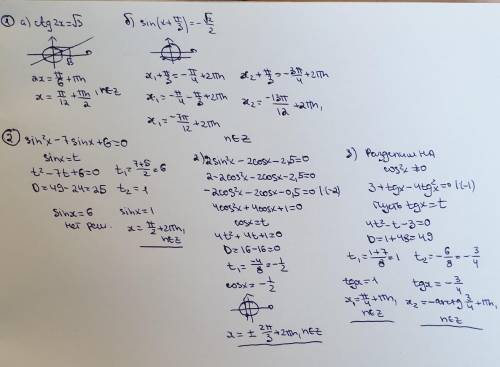 ① а) ctg2x=√3
√3
2x=π/6+πn
x=π/12+πn/2, n∈Z
б) sin(x+π/3)=-√2/2
x₁+π/3=-π/4+2πn
x₁=-π/4-π/3+2πn
x₁=-7π/12+2πn
x₂+π/3=-3π/4+2πn
x₂=-13π/12+2πn,
n∈Z
② sin²x-7sinx+6=0
sinx=t
t²-7t+6=0
D=49-24=25
t₁=(7+5)/2=6
t₂=1
sinx=6
нет реш.
sinx=1
x=π/2+2πn,
n∈Z
2) 2sin²x-2cosx-2,5=0
2-2cos²x-2cosx-2,5=0
-2cos²x-2cosx-0,5=0 |(-2)
4cos²x+4cosx+1=0
cosx=t
4t²+4t+1=0
D=16-16=0
t₁=-4/8=-1/2
cosx=-1/2
x=±2π/3+2πn, n∈Z
3) Разделим НА
cos²x≠0
3+tgx-4tg²x=0 |(-1)
Пусть tgx=t
4t²-t-3=0
D=1+48=49
t₁=(1+7)/8=1
t₂=-6/8=-3/4
tgx=1
x₁=π/4+πn,
n∈Z
tgx=-3/4
x₂=-arctg3/4+πn,
n∈Z